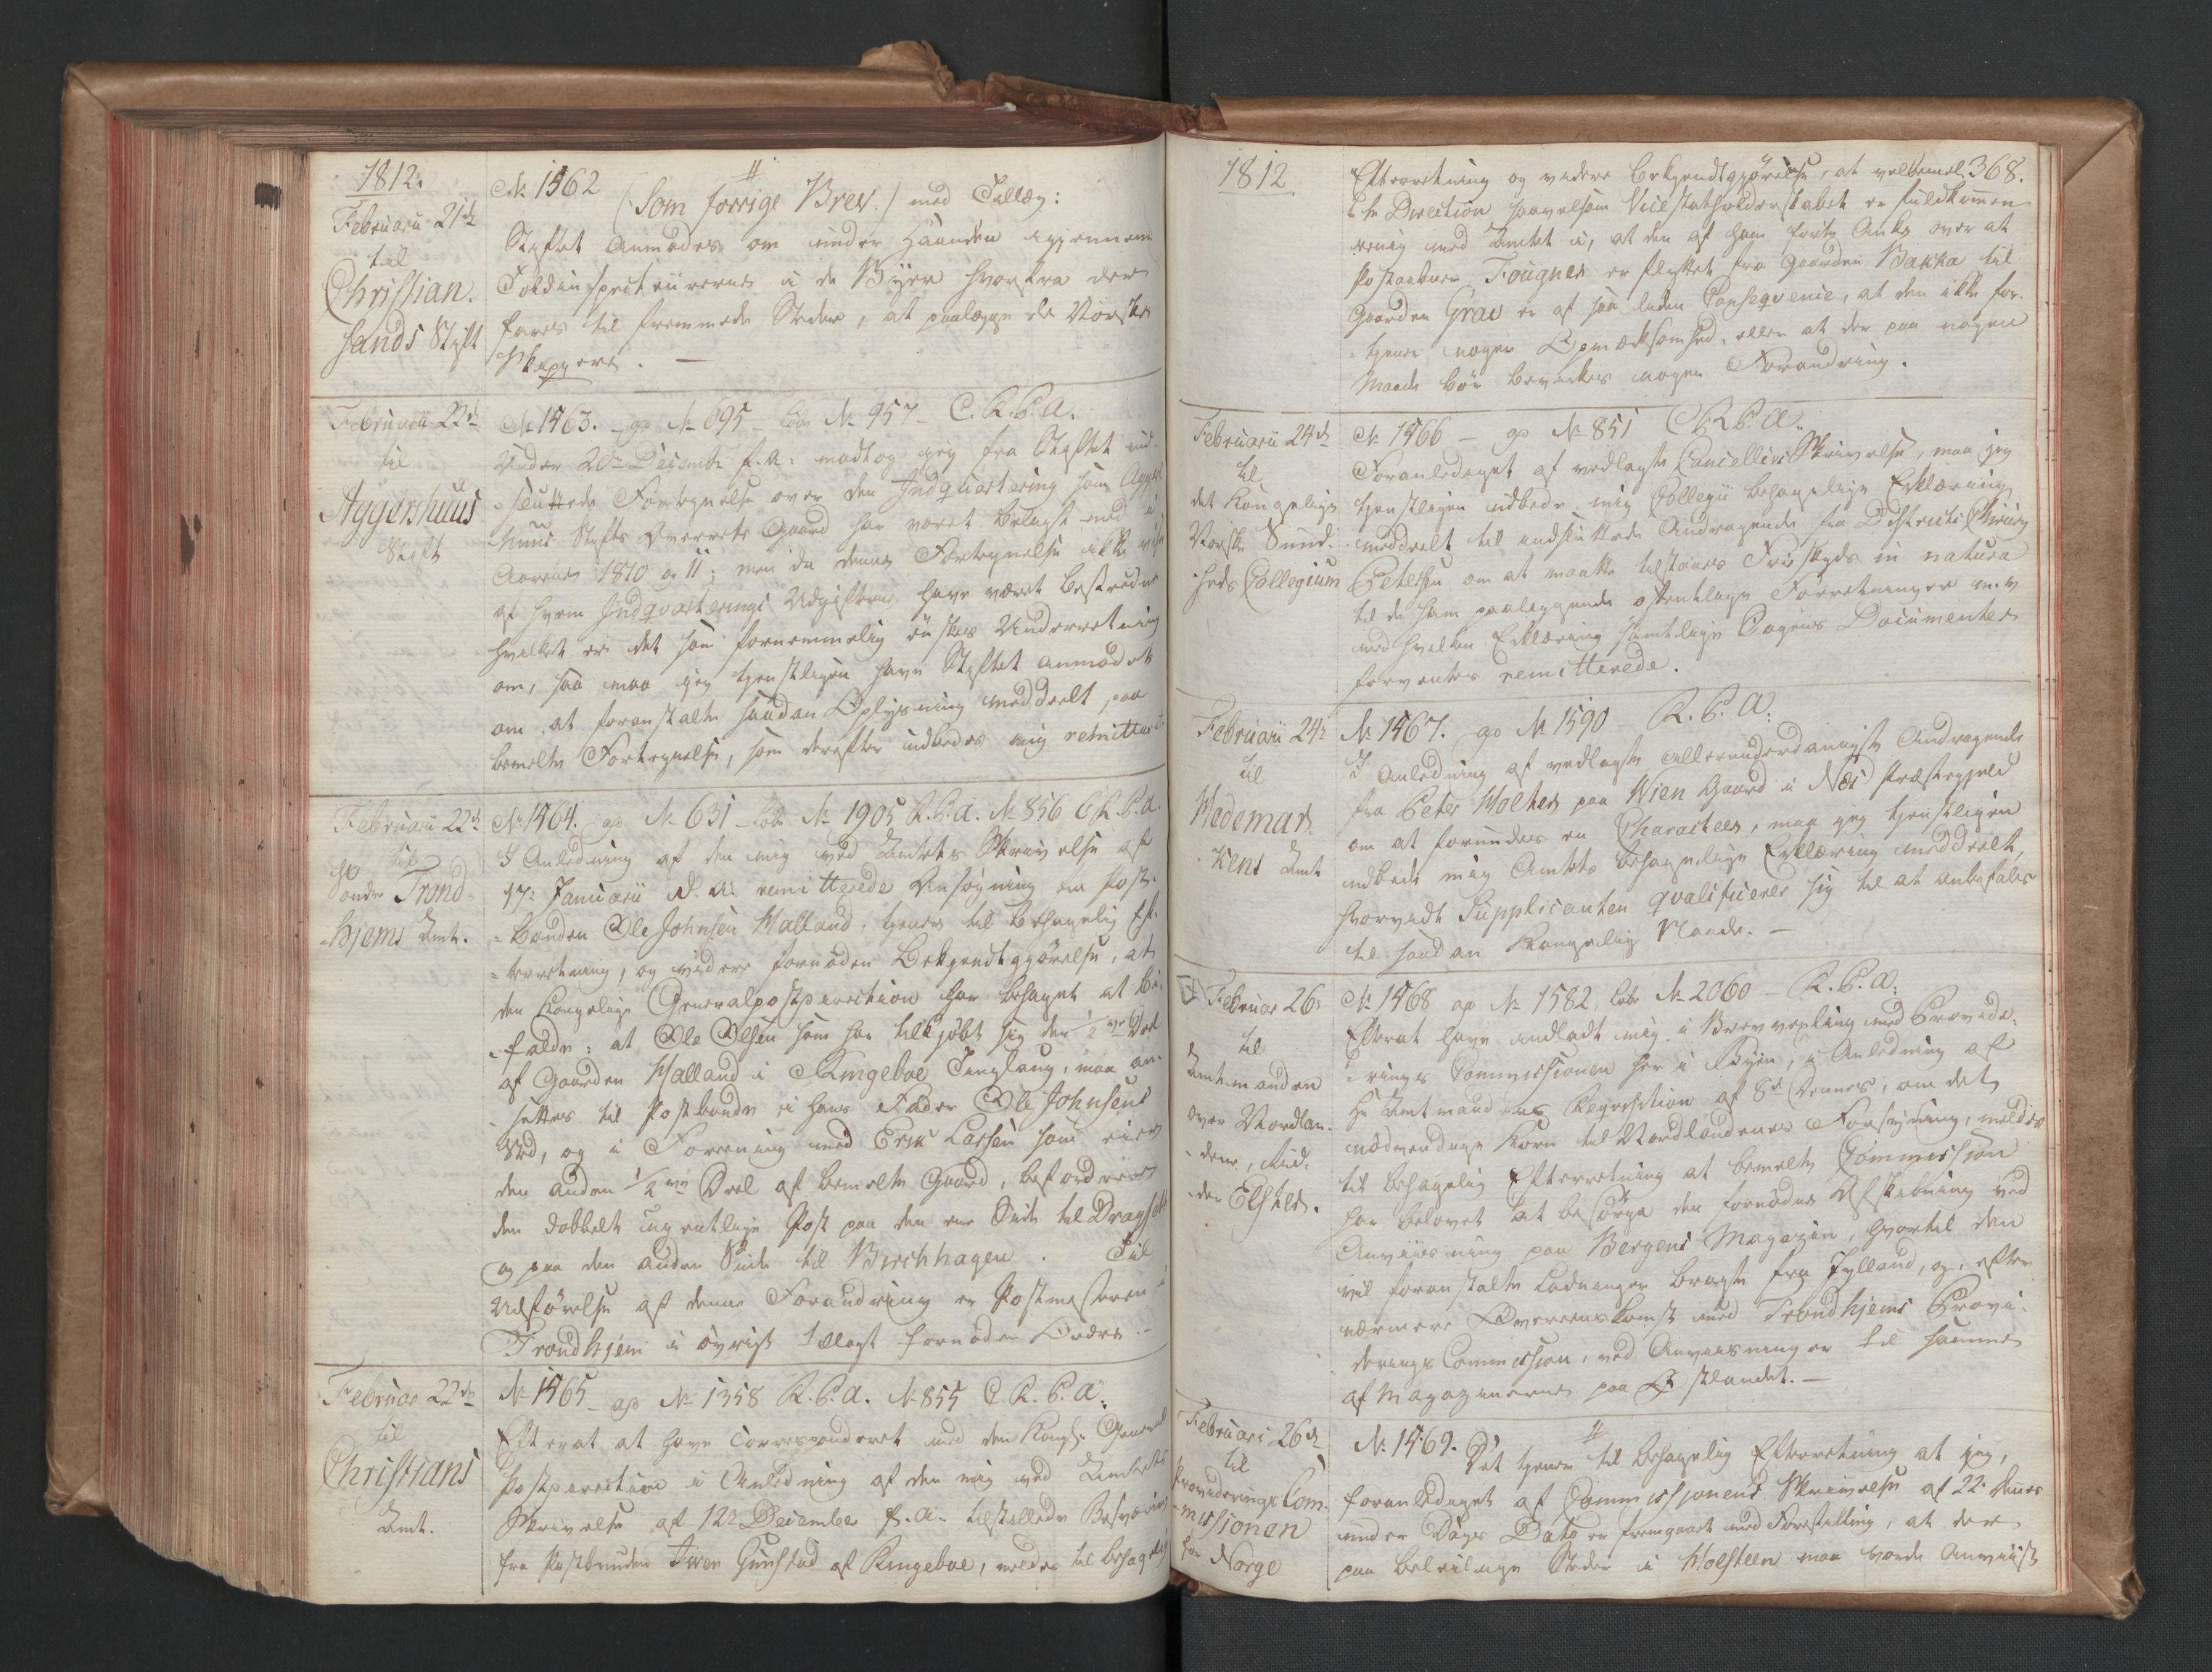 1812.
Februarii 21de
til
Christian.
sands Stift
No 1462
(Som forrige Brev.) med Tillæg:
Stiftet anmodes om under Haanden igjennem
Toldinspecteurerne i de Byer hvorfra der
fares til fremmede Steder, at paalægge de Norske
Skippere. —
Februarii 22de
til
Aggershuus
Stift
No 1463. — ge No 695 — Cobr No 957 — C.R.P.A.
Under 20de Decembr f.A. modtog jeg fra Stiftet ind-
sluttede Fortegnelse over den Indqvartering som Agger
huus Stifts Overrets Gaard har været belagt med i
Aarene 1810 og 11; men da denne Fortegnelse ikke viser
af hvem Indqvarterings Udgifterne have været bestredne
hvilket er det som fornemmelig önskes Underretning
om, saa maa jeg tjenstligen have Stiftet anmodet
om at foranstalte saadan Oplysning meddeelt paa
bemelte Fortegnelse, som derefter udbedes mig remitteret
Februarii 22de
til
Söndre Trond-
-hjems Amt.
No 1464. ge No 631 — Cobr No 1905 R.P.A. No 856 C.R.P.A.
I Anledning af den mig ved Amtets Skrivelse af
17de Januarii d. A. remitterede Ansögning fra Post-
-bonden Ole Johnsen Walland, tjener til behagelig Ef-
-terretning, og videre fornöden Bekjendtgjörelse, at
den Kongelige Generalpostdirection har behaget at bi-
-falde: at Ole Olsen som har tilkjöbt sig den 1/2 Deel
af Gaarden Walland i Ringeboe Tinglaug, maa an-
-sættes til Postbonde i hans Fader Ole Johnsens
Sted, og i Forening med Erik Larsen som eier
den anden 1/2 Deel af bemelte Gaard, befordrer
den dobbelt ugentlige Post paa den ene Side til Dragset
og paa den anden Side til Birchhagen. Til
Udförelse af denne Forandring er Postmesteren i
Trondhjem i övrigt tillagt fornöden Ordre. —
Februar 22de
til
Christians
Amt.
No 1465 — ge No 1358 R.P.A. No 855 C.R.P.A.
Efterat at have corresponderet med den Kongl. General
Postdirection i Anledning af den mig ved Amtets
Skrivelse af 12te December f.A. tilstillede Besværing
fra Postbonden Iver Gunstad af Ringeboe, meldes til behagelig
1812
368.
Efterretning og videre Bekjendtgjörelse, at velbemel-
te Direction saavelsom Vicestatholderskabet er fuldkommen
eenig med Amtet i, at den af ham förte Anke over at
Postaabner Fougner er flyttet fra Gaarden Bakka til
Gaarden Grav er af saa liden Conseqvence, at den ikke for-
-tjener nogen Opmærksomhed, eller at der paa nogen
Maade bör bevirkes nogen Forandring.
Februarii 24de
til
det kongelige
Norske Sund-
-heds Collegium
No 1466 — ge No 851 C.R.P.A.
Foranlediget af vedlagte Cancellie Skrivelse, maa jeg
tjenstligen udbede mig Collegii behagelige Erklæring
meddeelt til indsluttede Andragende fra Districts Chirurg
Petersen om at maatte tilstaaes Friskyds in natura
til de ham paaliggende offentlige Forretninger m.v
med hvilken Erklæring samtlige Sagens Documenter
forventes remitterede.
Februarii 24de
til
Hedemar-
-kens Amt
No 1467. ge No 1590 — R.P.A.
I Anledning af vedlagte allerunderdanigste Andragende
fra Peter Wolter paa Wien Gaard i Næs Præstegjeld
om at forundes en Characteer, maa jeg tjenstligen
udbede mig Amtets behagelige Erklæring meddeelt,
hvorvidt Supplicanten qvalificerer sig til at anbefales
til saadan Kongelig Naade. —
Februar 26de
til
Amtmanden
over Nordlan-
-dene, Rid-
-der Elster.
No 1468 ge No 1582. Cobr No 2060 — R.P.A.
Efterat have indladt mig i Brevvexling med Provide-
-rings Commissionen her i Byen, i Anledning af
Hr Amtmandens Reqvisition af 8de dennes, om det
nödvendige Korn til Nordlandenes Forsyning, meldes
til behagelig Efterretning at bemelte Commission
har belovet at besörge den fornödne Afskibning ved
Anviisning paa Bergens Magazin, hvortil den
vil foranstalte Ladninger bragte fra Jylland, og, efter
nærmere Overeenskomst med Trondhjems Provi-
derings Commission, ved Anviisninger til samme
af Magazinerne paa Östlandet. —
Februari 26de
til
Provideringscom-
-missionen
for Norge
No 1469.
Det tjener til behagelig Efterretning at jeg,
foranlediget af Commissionens Skrivelse af 22de dennes
under Dags Dato er fremgaaet med Forestilling, at der
paa beleilige Steder i Holsteen maa vorde anviist